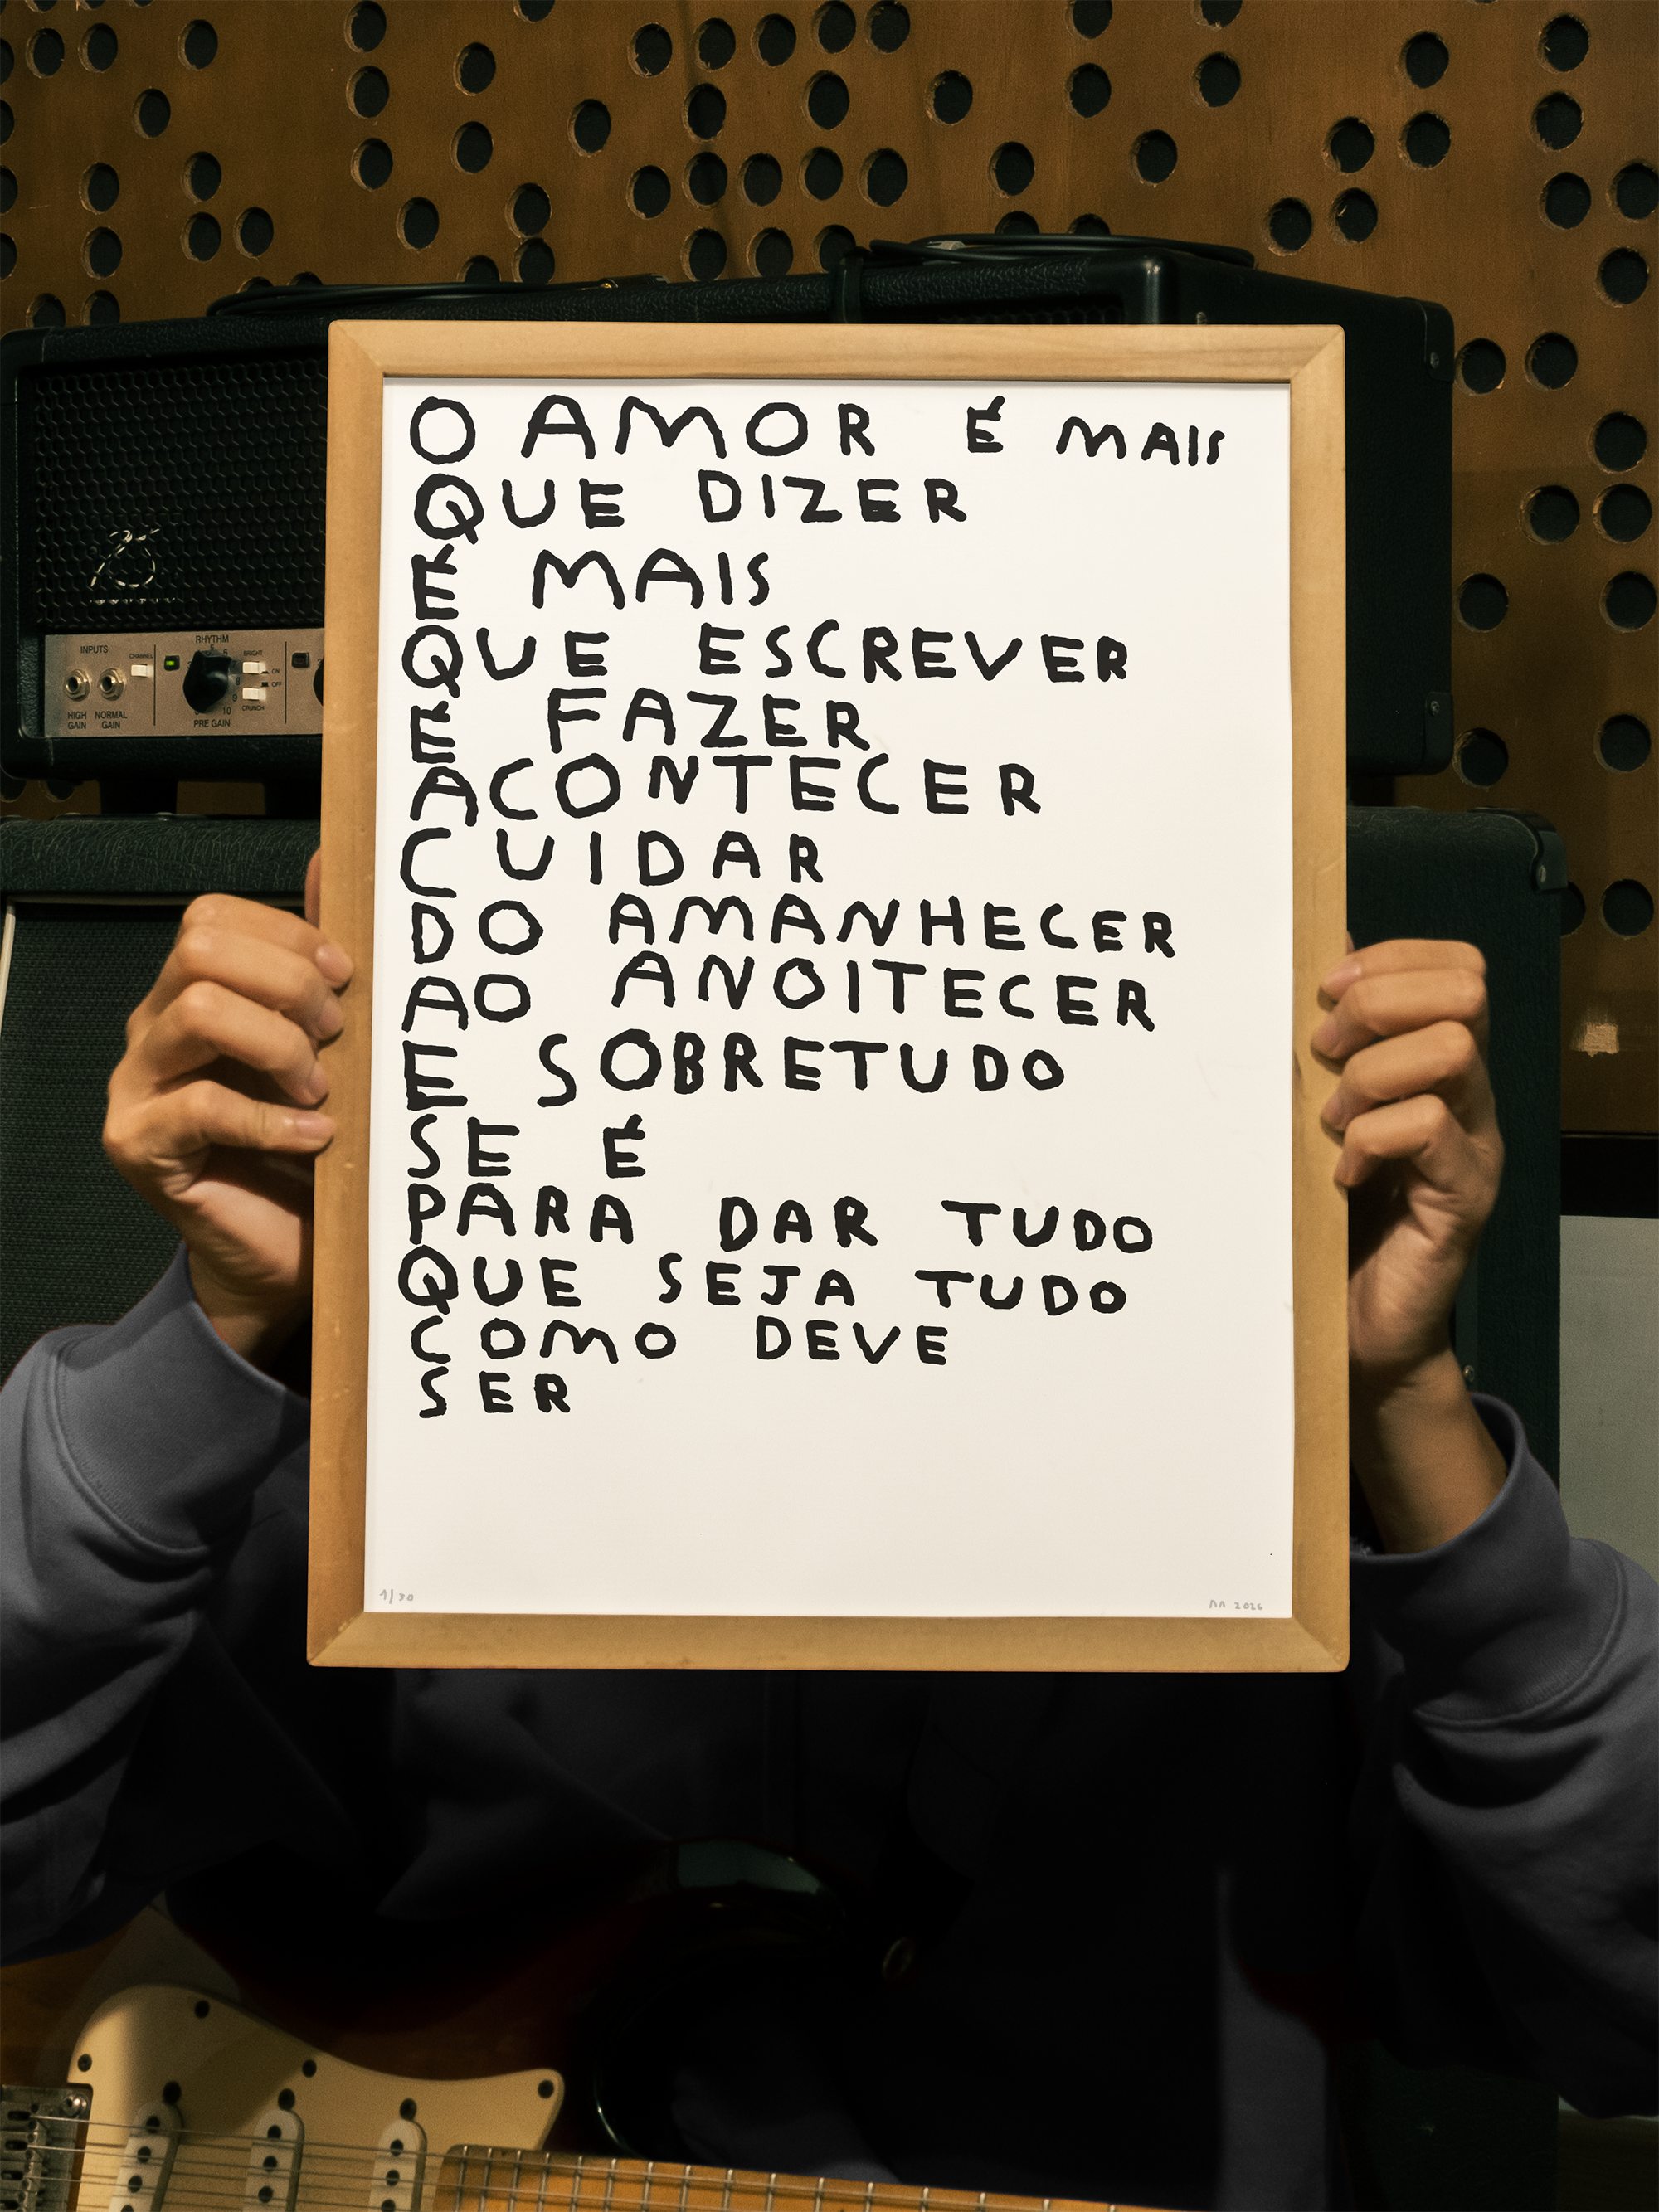 O AMOR É MAIS
QUE DIZER
É MAIS
QUE ESCREVER
É FAZER
ACONTECER
CUIDAR
DO AMANHECER
AO ANOITECER
E SOBRETUDO
SE É
PARA DAR TUDO
QUE SEJA TUDO
COMO DEVE
SER
1/30
2026
INPUTS
HIGH GAIN
NORMAL GAIN
CHANNEL
RHYTHM
10
PRE GAIN
BRIGHT
ON
OFF
CRUNCH